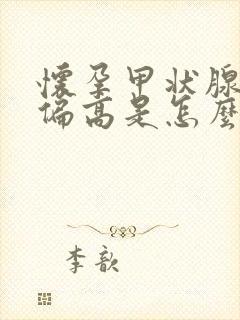 懷孕甲狀腺
偏高是怎麼
李歆